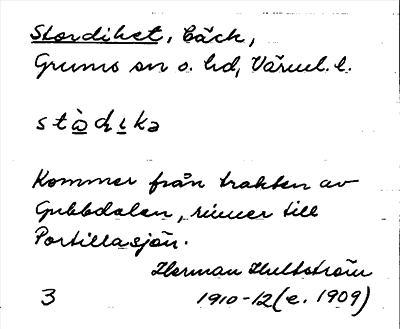 Stordiket, bäck,
Grums sn o. hd, Värml. l.
stὰdıkə
Kommer från trakten av
Gubbdalen, rinner till
Portillasjön.
Herman Hultström
3 1910-12 (e. 1909)